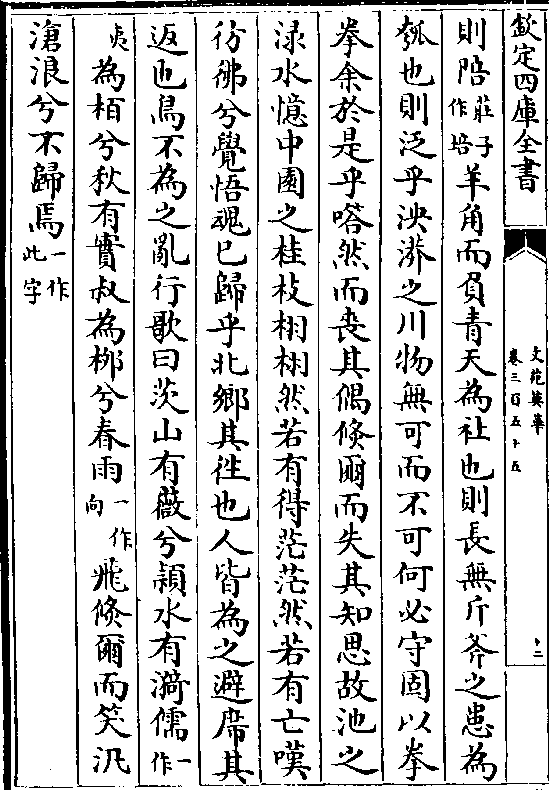 欽定四庫全書
文苑英華
卷三百五十五
十二
則陪莊子作培羊角而負青天為社也則長無斤斧之患為
瓠也則泛乎泱漭之川物無可而不可何必守固以拳
拳余於是乎嗒然而喪其偶倏爾而失其知思故池之
渌水憶中園之桂枝栩栩然若有得茫茫然若有亡嘆
彷彿兮覺悟魂已歸乎北鄉其徃也人皆為之避席其
返也鳥不為之亂行歌曰茨山有薇兮頴水有漪儒一作
夷為栢兮秋有實叔為栁兮春雨一作向飛倏爾而笑汎
滄浪兮不歸焉一作此字